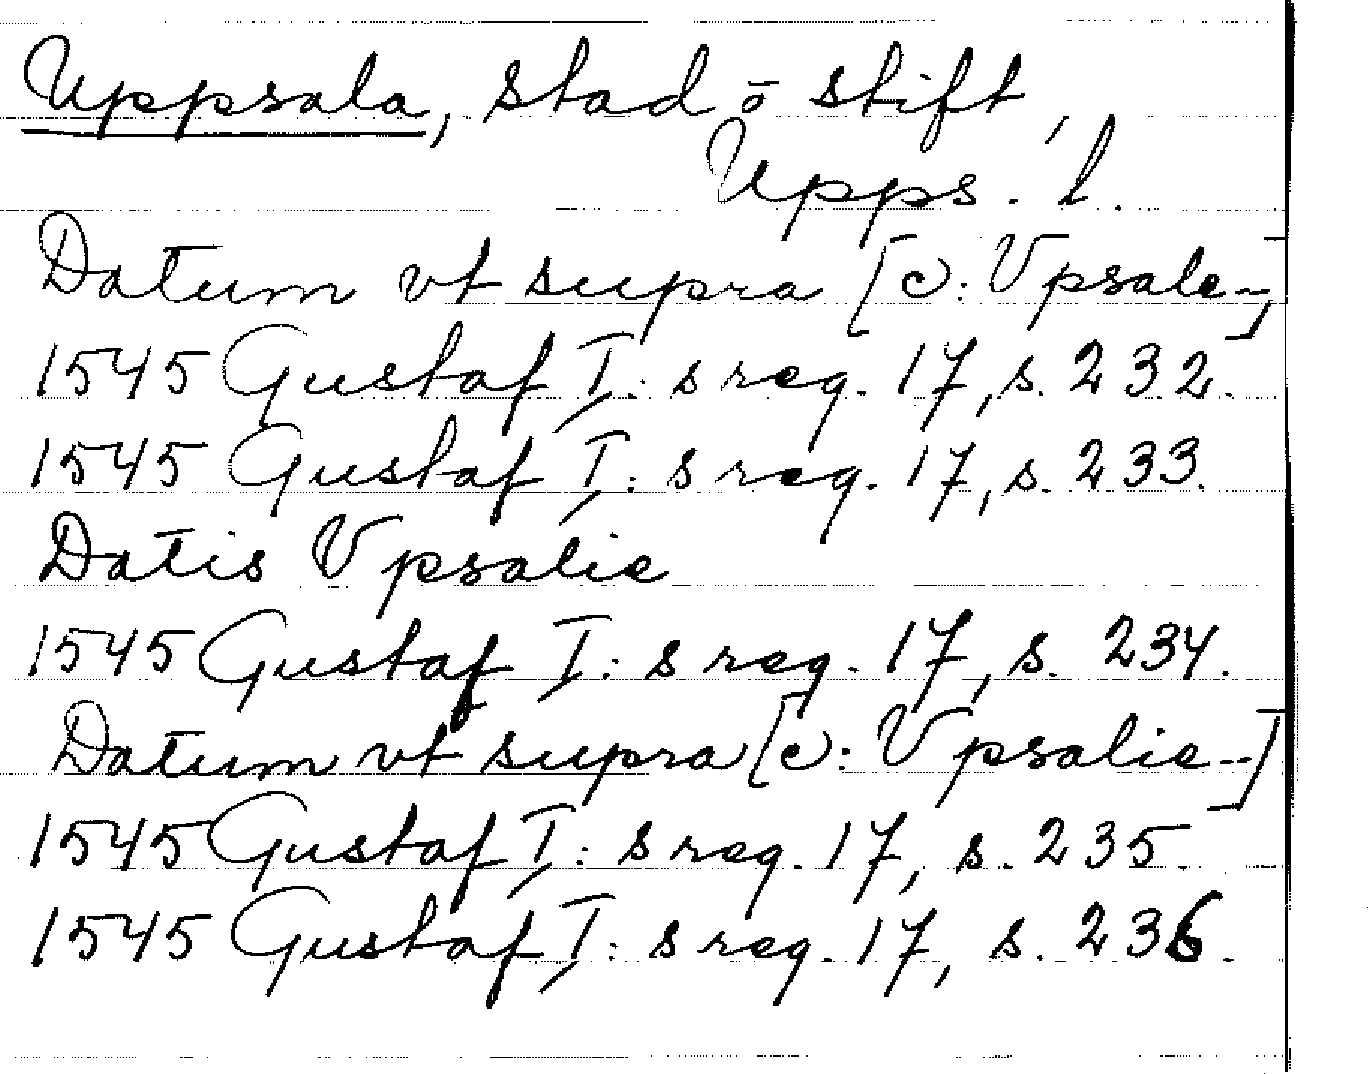 Uppsala, stad o stift,
Upps. l.
Datum vt supra [ɔ: Vpsale--]
1545 Gustaf I:s reg. 17, s. 232.
1545 Gustaf I:s reg. 17, s. 233.
Datis Vpsalie
1545 Gustaf I:s reg. 17, s. 234.
Datum vt supra [ɔ: Vpsalie--]
1545 Gustaf I:s reg. 17, s. 235.
1545 Gustaf I:s reg. 17, s. 236.